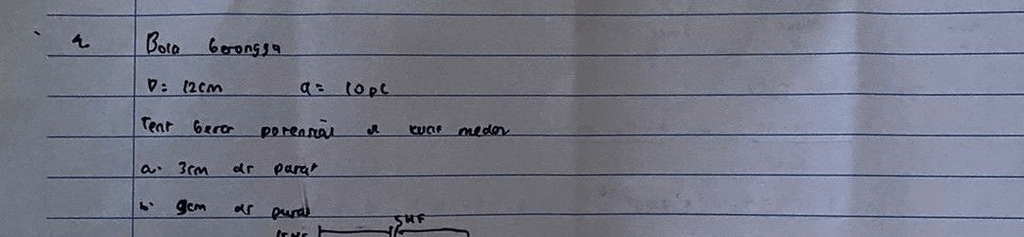 4 Bola berongga
D= 12cm q= 10 pc
Tent besar potensial & kuat medan
a. 3cm dr pusat
b. 9cm dr pusat
5MF